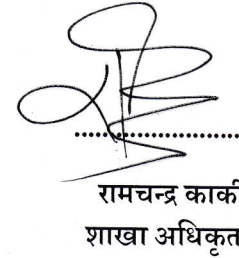 रामचन्द्र कार्की
शाखा अधिकृत